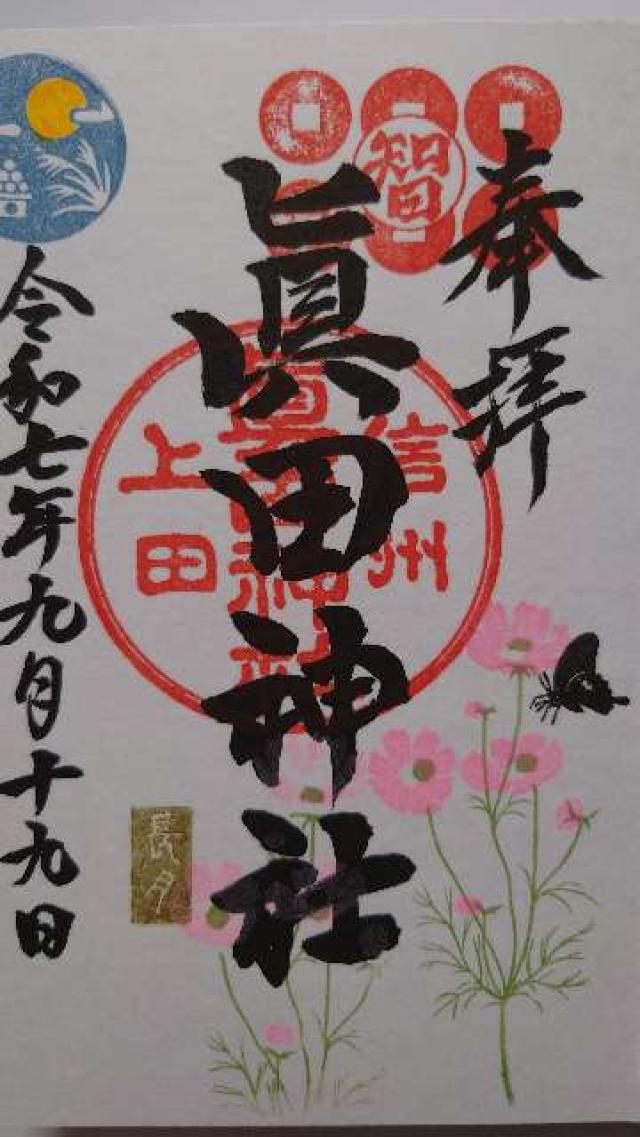 奉拝
智
眞田神社
信州
眞田神社
上田
長月
令和七年九月十九日